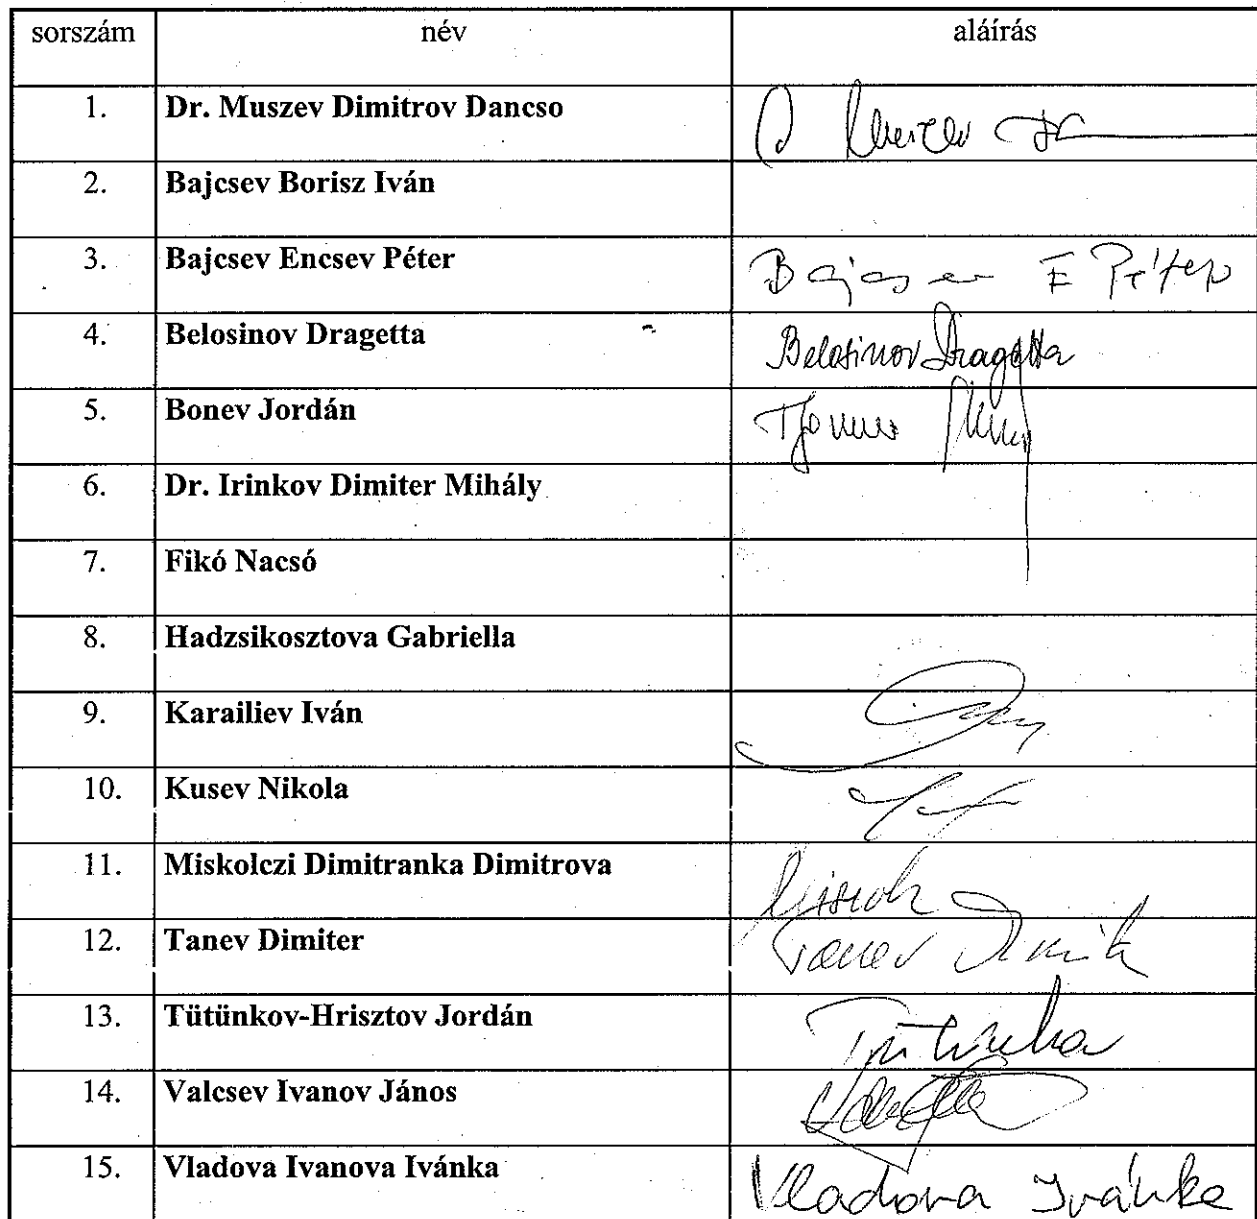 sorszám név aláírás
1. Dr. Muszev Dimitrov Dancso
2. Bajcsev Borisz Iván
3. Bajcsev Encsev Péter Bajcsev E Péter
4. Belosinov Dragetta Belosinov Dragetta
5. Bonev Jordán
6. Dr. Irinkov Dimiter Mihály
7. Fikó Nacsó
8. Hadzsikosztova Gabriella
9. Karailiev Iván
10. Kusev Nikola
11. Miskolczi Dimitranka Dimitrova
12. Tanev Dimiter Tanev
13. Tütünkov-Hrisztov Jordán
14. Valcsev Ivanov János
15. Vladova Ivanova Ivánka Vladova Ivánka